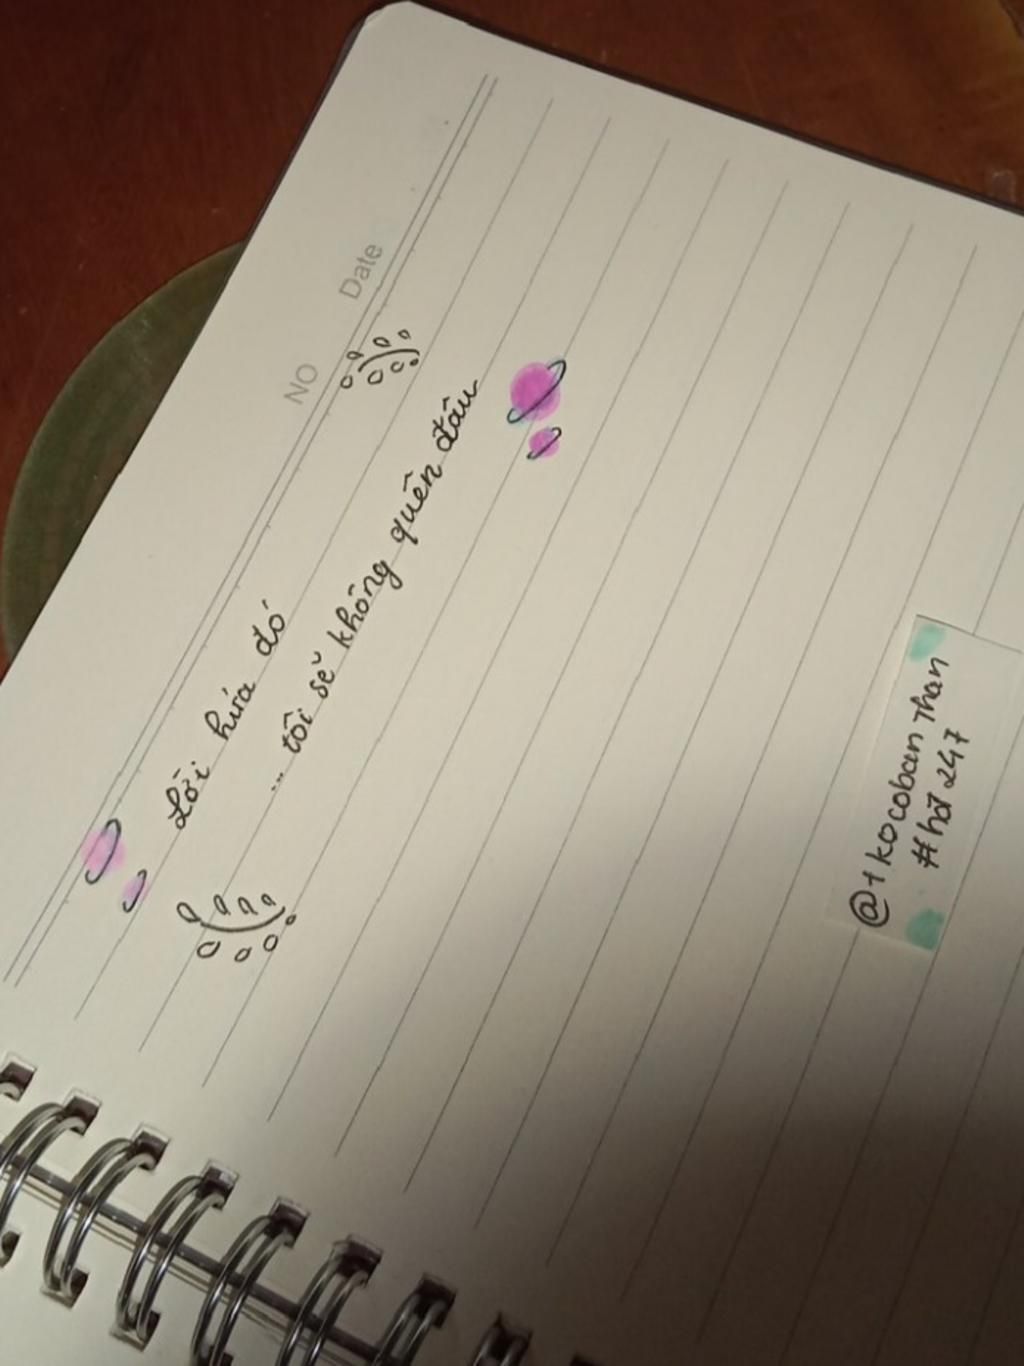 NO
Date
Lời hứa đó
... tôi sẽ không quên đâu
@1kocobanThan
#hoī247